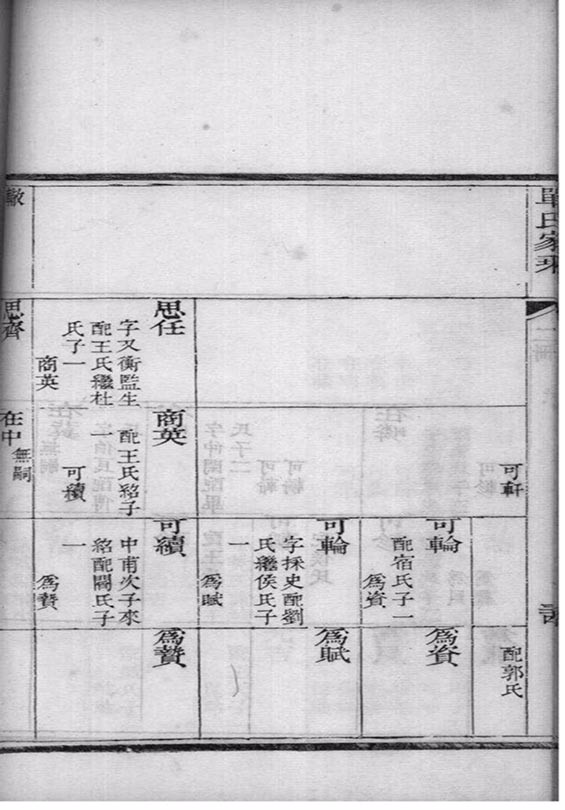 單氏家乘
轍
思任
字又衡監生
配王氏繼杜
氏子一
商英
思齊
可軒
商英
配王氏紹子
一
可續
在中
無嗣
可輪
配宿氏子一
爲資
可輪
字採史配劉
氏繼侯氏子
一
爲賦
可續
中甫次子來
紹配閻氏子
一
爲贊
配郭氏
爲資
爲賦
爲贊